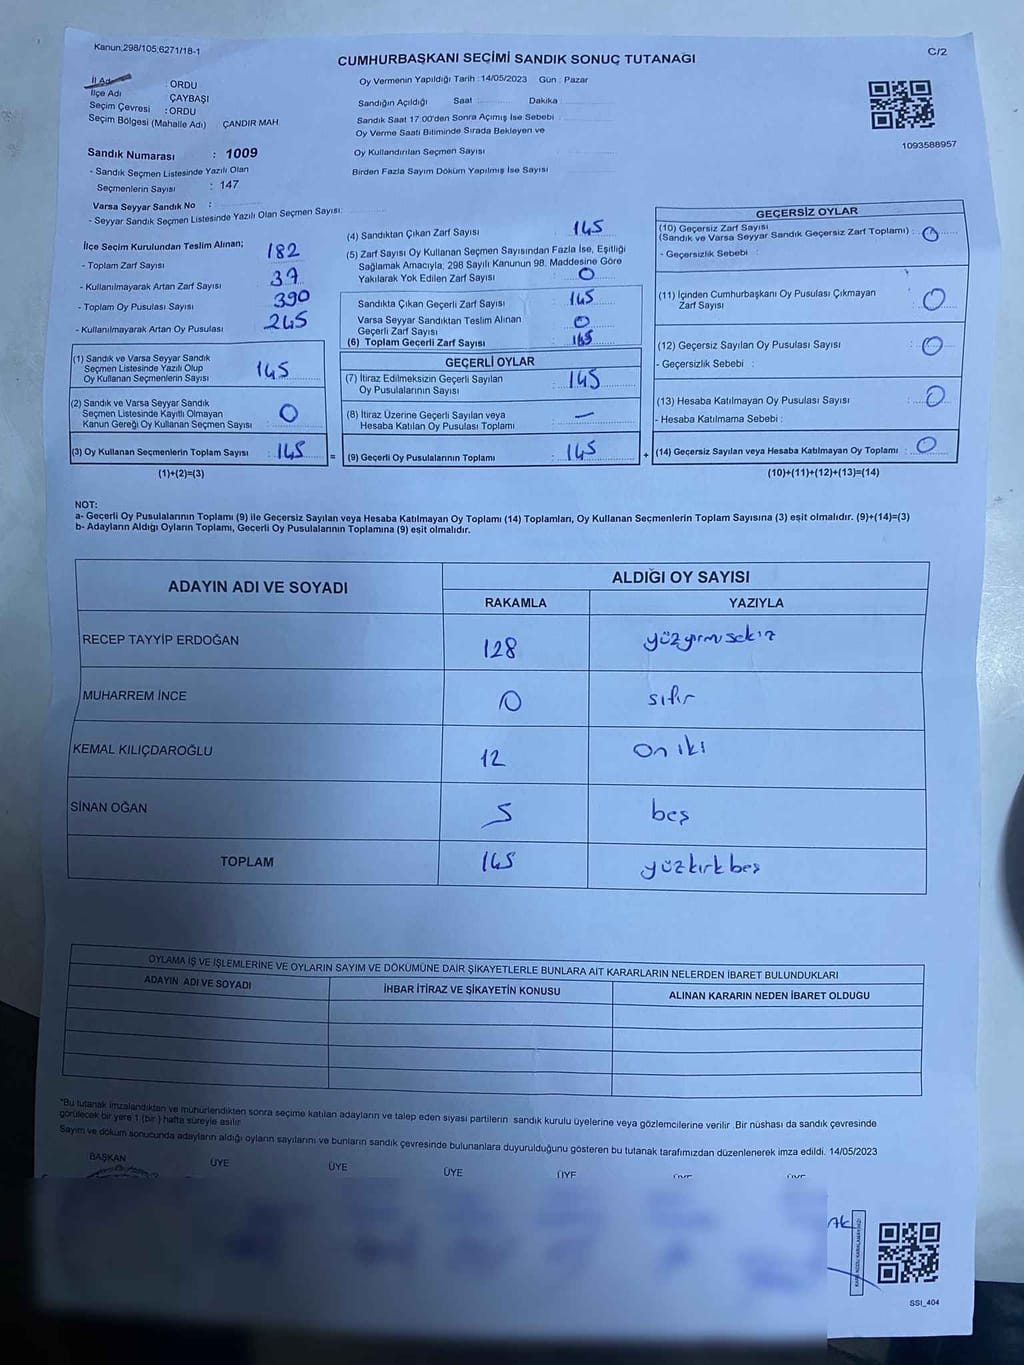 Kanun,298/105,6271/18-1
C/2
CUMHURBAŞKANI SEÇİMİ SANDIK SONUÇ TUTANAĞI
İl Adı : ORDU
İlçe Adı ÇAYBAŞI
Seçim Çevresi : ORDU
Seçim Bölgesi (Mahalle Adı) ÇANDIR MAH
Sandık Numarası : 1009
- Sandık Seçmen Listesinde Yazılı Olan
Seçmenlerin Sayısı : 147
Varsa Seyyar Sandık No :
- Seyyar Sandık Seçmen Listesinde Yazılı Olan Seçmen Sayısı:
Oy Vermenin Yapıldığı Tarih : 14/05/2023 Gün : Pazar
Sandığın Açıldığı Saat : Dakika
Sandık Saat 17:00'den Sonra Açımış İse Sebebi :
Oy Verme Saati Bitiminde Sırada Bekleyen ve
Oy Kullandırılan Seçmen Sayısı
Birden Fazla Sayım Döküm Yapılmış İse Sayısı
1093588957
İlçe Seçim Kurulundan Teslim Alınan;
- Toplam Zarf Sayısı 182
- Kullanılmayarak Artan Zarf Sayısı 37
- Toplam Oy Pusulası Sayısı 390
- Kullanılmayarak Artan Oy Pusulası 245
(1) Sandık ve Varsa Seyyar Sandık
Seçmen Listesinde Yazılı Olup
Oy Kullanan Seçmenlerin Sayısı 145
(2) Sandık ve Varsa Seyyar Sandık
Seçmen Listesinde Kayıtlı Olmayan
Kanun Gereği Oy Kullanan Seçmen Sayısı 0
(3) Oy Kullanan Seçmenlerin Toplam Sayısı : 145
(1)+(2)=(3)
=
(4) Sandıktan Çıkan Zarf Sayısı 145
(5) Zarf Sayısı Oy Kullanan Seçmen Sayısından Fazla İse, Eşitliği
Sağlamak Amacıyla; 298 Sayılı Kanunun 98. Maddesine Göre
Yakılarak Yok Edilen Zarf Sayısı 0
Sandıkta Çıkan Geçerli Zarf Sayısı 145
Varsa Seyyar Sandıktan Teslim Alınan
Geçerli Zarf Sayısı 0
(6) Toplam Geçerli Zarf Sayısı 145
GEÇERLİ OYLAR
(7) İtiraz Edilmeksizin Geçerli Sayılan
Oy Pusulalarının Sayısı 145
(8) İtiraz Üzerine Geçerli Sayılan veya
Hesaba Katılan Oy Pusulası Toplamı —
(9) Geçerli Oy Pusulalarının Toplamı : 145
+
GEÇERSİZ OYLAR
(10) Geçersiz Zarf Sayısı
(Sandık ve Varsa Seyyar Sandık Geçersiz Zarf Toplamı) : 0
- Geçersizlik Sebebi :
(11) İçinden Cumhurbaşkanı Oy Pusulası Çıkmayan
Zarf Sayısı 0
(12) Geçersiz Sayılan Oy Pusulası Sayısı : 0
- Geçersizlik Sebebi :
(13) Hesaba Katılmayan Oy Pusulası Sayısı : 0
- Hesaba Katılmama Sebebi :
(14) Geçersiz Sayılan veya Hesaba Katılmayan Oy Toplamı : 0
(10)+(11)+(12)+(13)=(14)
NOT:
a- Geçerli Oy Pusulalarının Toplamı (9) ile Geçersiz Sayılan veya Hesaba Katılmayan Oy Toplamı (14) Toplamları, Oy Kullanan Seçmenlerin Toplam Sayısına (3) eşit olmalıdır. (9)+(14)=(3)
b- Adayların Aldığı Oyların Toplamı, Geçerli Oy Pusulalarının Toplamına (9) eşit olmalıdır.
ADAYIN ADI VE SOYADI ALDIĞI OY SAYISI
RAKAMLA YAZIYLA
RECEP TAYYİP ERDOĞAN 128 yüzyirmisekiz
MUHARREM İNCE 0 sıfır
KEMAL KILIÇDAROĞLU 12 on iki
SİNAN OĞAN 5 beş
TOPLAM 145 yüzkırkbeş
OYLAMA İŞ VE İŞLEMLERİNE VE OYLARIN SAYIM VE DÖKÜMÜNE DAİR ŞİKAYETLERLE BUNLARA AİT KARARLARIN NELERDEN İBARET BULUNDUKLARI
ADAYIN ADI VE SOYADI İHBAR İTİRAZ VE ŞİKAYETİN KONUSU ALINAN KARARIN NEDEN İBARET OLDUGU
*Bu tutanak imzalandıktan ve mühürlendikten sonra seçime katılan adayların ve talep eden siyasi partilerin sandık kurulu üyelerine veya gözlemcilerine verilir .Bir nüshası da sandık çevresinde
görülecek bir yere 1 (bir ) hafta süreyle asılır
Sayım ve döküm sonucunda adayların aldığı oyların sayılarını ve bunların sandık çevresinde bulunanlara duyurulduğunu gösteren bu tutanak tarafımızdan düzenlenerek imza edildi. 14/05/2023
BAŞKAN ÜYE ÜYE ÜYE ÜYE ÜYE ÜYE
SSI_404